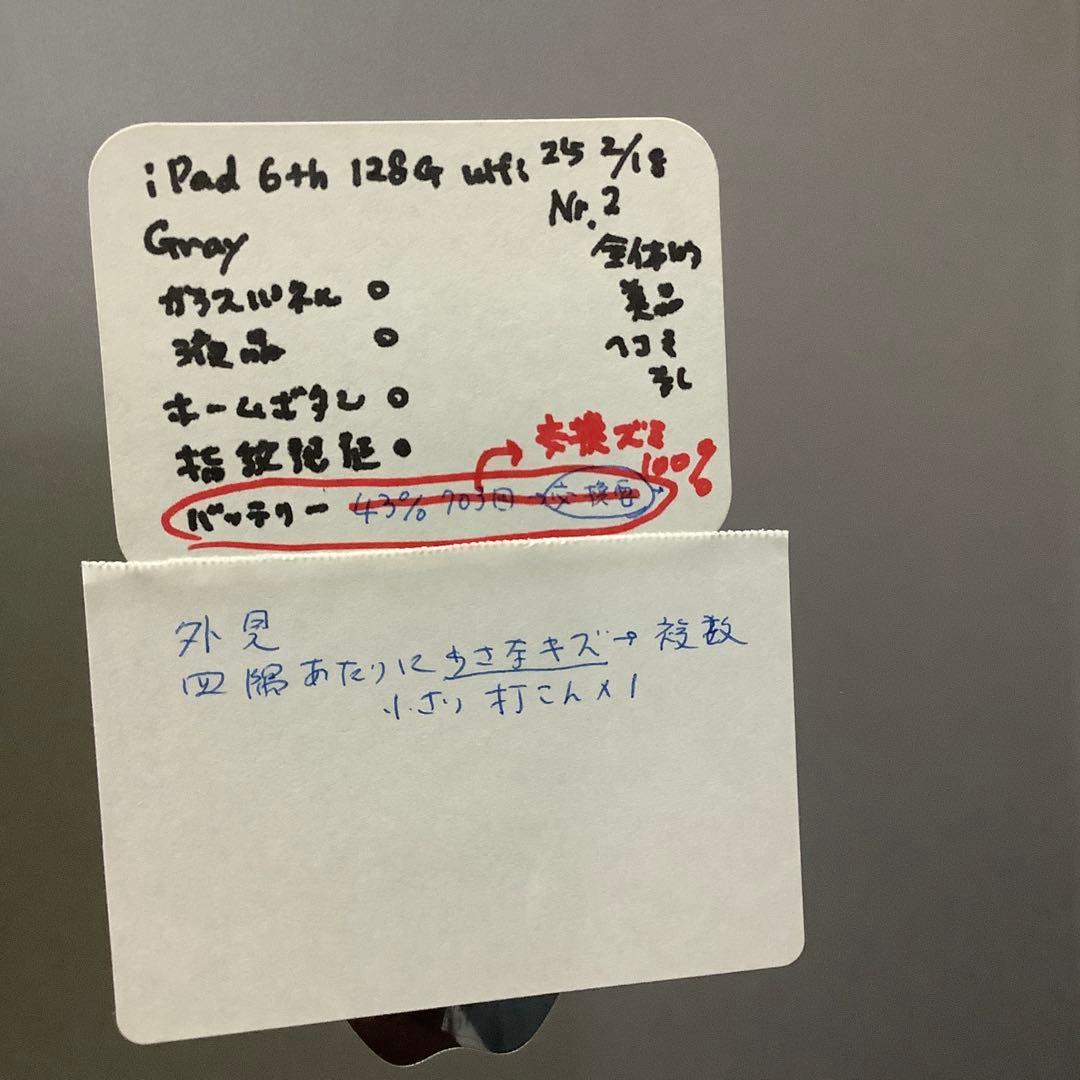 iPad 6th 128G wifi 25 2/18
Nr.2
Gray
全体的
美品
ヘコミ
なし
ガラスパネル ○
液晶 ○
ホームボタン ○
指紋認証 ○
交換ズミ
100%
バッテリー 43% 703回→交換要→
外見
四隅あたりに小さなキズ→複数
小さい打こん×1